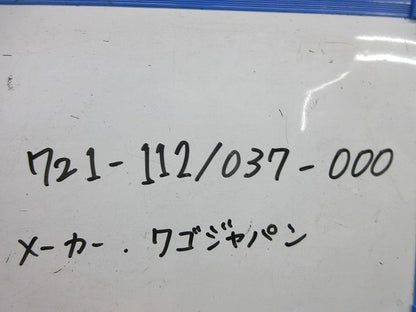 721-112/037-000
メーカー. ワゴジャパン